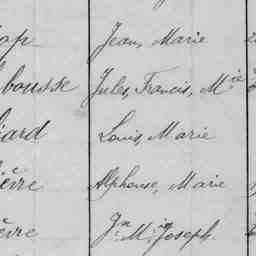 op Jean, Marie
bousse Jules, Francis, Mie
ard Louis, Marie
èvre Alphonse, Marie
èvre Jn Mie Joseph